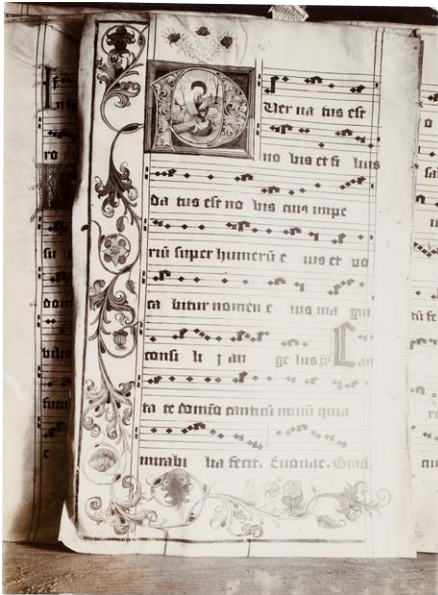 Puer na tus est
no bis et fi lius
da tus est no bis cuius impe
riū super humerū e ius et vo
ca bitur nomen e ius ma gni
consi li j an ge lus p̄s Can
ta te domino canticū novū quia
mirabi lia fecit. Euouae. Grad.